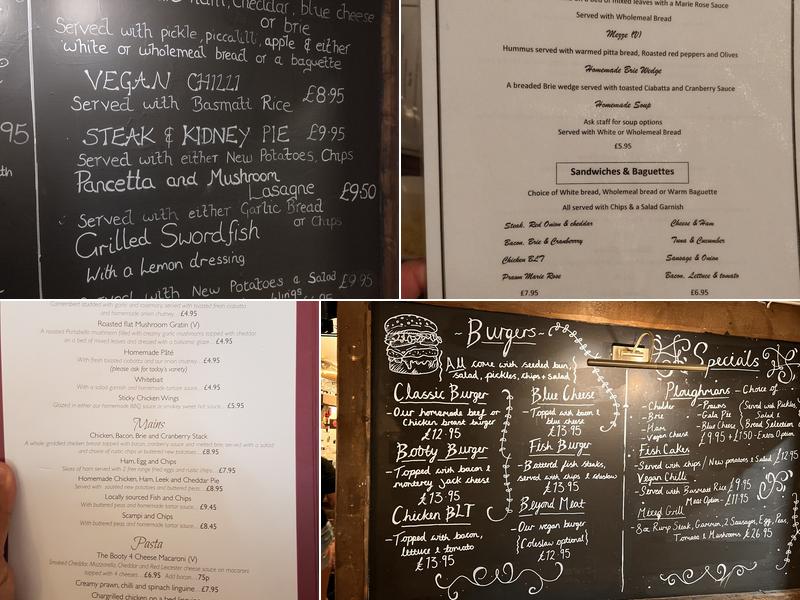 ham, Cheddar, blue cheese
or brie
Served with pickle, piccalilli, apple & either
white or wholemeal bread or a baguette
VEGAN CHILLI
£8.95
Served with Basmati Rice
STEAK & KIDNEY PIE £9.95
Served with either New Potatoes, Chips
Pancetta and Mushroom
Lasagne £9.50
Served with either Garlic Bread
or Chips
Grilled Swordfish
With a Lemon dressing
with New Potatoes & Salad £9.95
95
on a bed of mixed leaves with a Marie Rose Sauce
Served with Wholemeal Bread
Mezze (V)
Hummus served with warmed pitta bread, Roasted red peppers and Olives
Homemade Brie Wedge
A breaded Brie wedge served with toasted Ciabatta and Cranberry Sauce
Homemade Soup
Ask staff for soup options
Served with White or Wholemeal Bread
£5.95
Sandwiches & Baguettes
Choice of White bread, Wholemeal bread or Warm Baguette
All served with Chips & a Salad Garnish
Steak, Red Onion & cheddar
Cheese & Ham
Bacon, Brie & Cranberry
Tuna & Cucumber
Chicken BLT
Sausage & Onion
Prawn Marie Rose
Bacon, Lettuce & tomato
£7.95
£6.95
Camembert studded with garlic and rosemary, served with toasted ciabatta
and homemade onion chutney... £4.95
Roasted flat Mushroom Gratin (V)
A roasted Portabello mushroom filled with creamy garlic mushrooms topped with cheddar
on a bed of mixed leaves and dressed with a balsamic glaze... £4.95
Homemade Pâté
With fresh toasted ciabatta and our onion chutney... £4.95
(please ask for today's variety)
Whitebait
With a salad garnish and homemade tartare sauce... £4.95
Sticky Chicken Wings
Glazed in either our homemade BBQ sauce or smokey sweet hot sauce... £5.95
Mains
Chicken, Bacon, Brie and Cranberry Stack
A whole griddled chicken breast topped with bacon, cranberry sauce and melted brie, served with a salad
and choice of rustic chips or buttered new potatoes... £8.95
Ham, Egg and Chips
Slices of ham served with 2 free range fried eggs and rustic chips... £7.95
Homemade Chicken, Ham, Leek and Cheddar Pie
Served with sautéed new potatoes and buttered peas... £8.95
Locally sourced Fish and Chips
With buttered peas and homemade tartare sauce... £9.45
Scampi and Chips
With buttered peas and homemade tartare sauce... £8.45
Pasta
The Booty 4 Cheese Macaroni (V)
Smoked Cheddar, Mozzarella, Cheddar and Red Leicester cheese sauce on macaroni
topped with 4 cheeses... £6.95 Add bacon...75p
Creamy prawn, chilli and spinach linguine... £7.95
Chargrilled chicken on a bed linguine
- Burgers -
All come with seeded bun,
salad, pickles, chips & salad
Classic Burger
- Our homemade beef or
Chicken breast burger
£12.95
Booty Burger
- Topped with bacon &
monterey jack cheese
£13.95
Chicken BLT
- Topped with bacon,
lettuce & tomato
£13.95
Blue Cheese
- Topped with bacon &
blue cheese
£13.95
Fish Burger
- Battered fish steaks,
served with chips &
£13.95
Beyond Meat
- Our vegan burger
(Coleslaw optional)
£12.95
Specials
Ploughmans - Choice of
- Chedder
- Brie
- Ham
- Vegan Cheese
- Prawns
- Gala Pie
- Blue Cheese
Served with Pickles,
Salad &
Bread Selection
£9.95 + £1.50 - Extra Option
Fish Cakes
- Served with chips / New potatoes & Salad £12.95
Vegan Chilli
- Served with Basmati Rice £9.95
Meat Option - £11.95
Mixed Grill
- 8oz Rump Steak, Gammon, 2 Sausages, Egg, Peas,
Tomato & Mushrooms £26.95